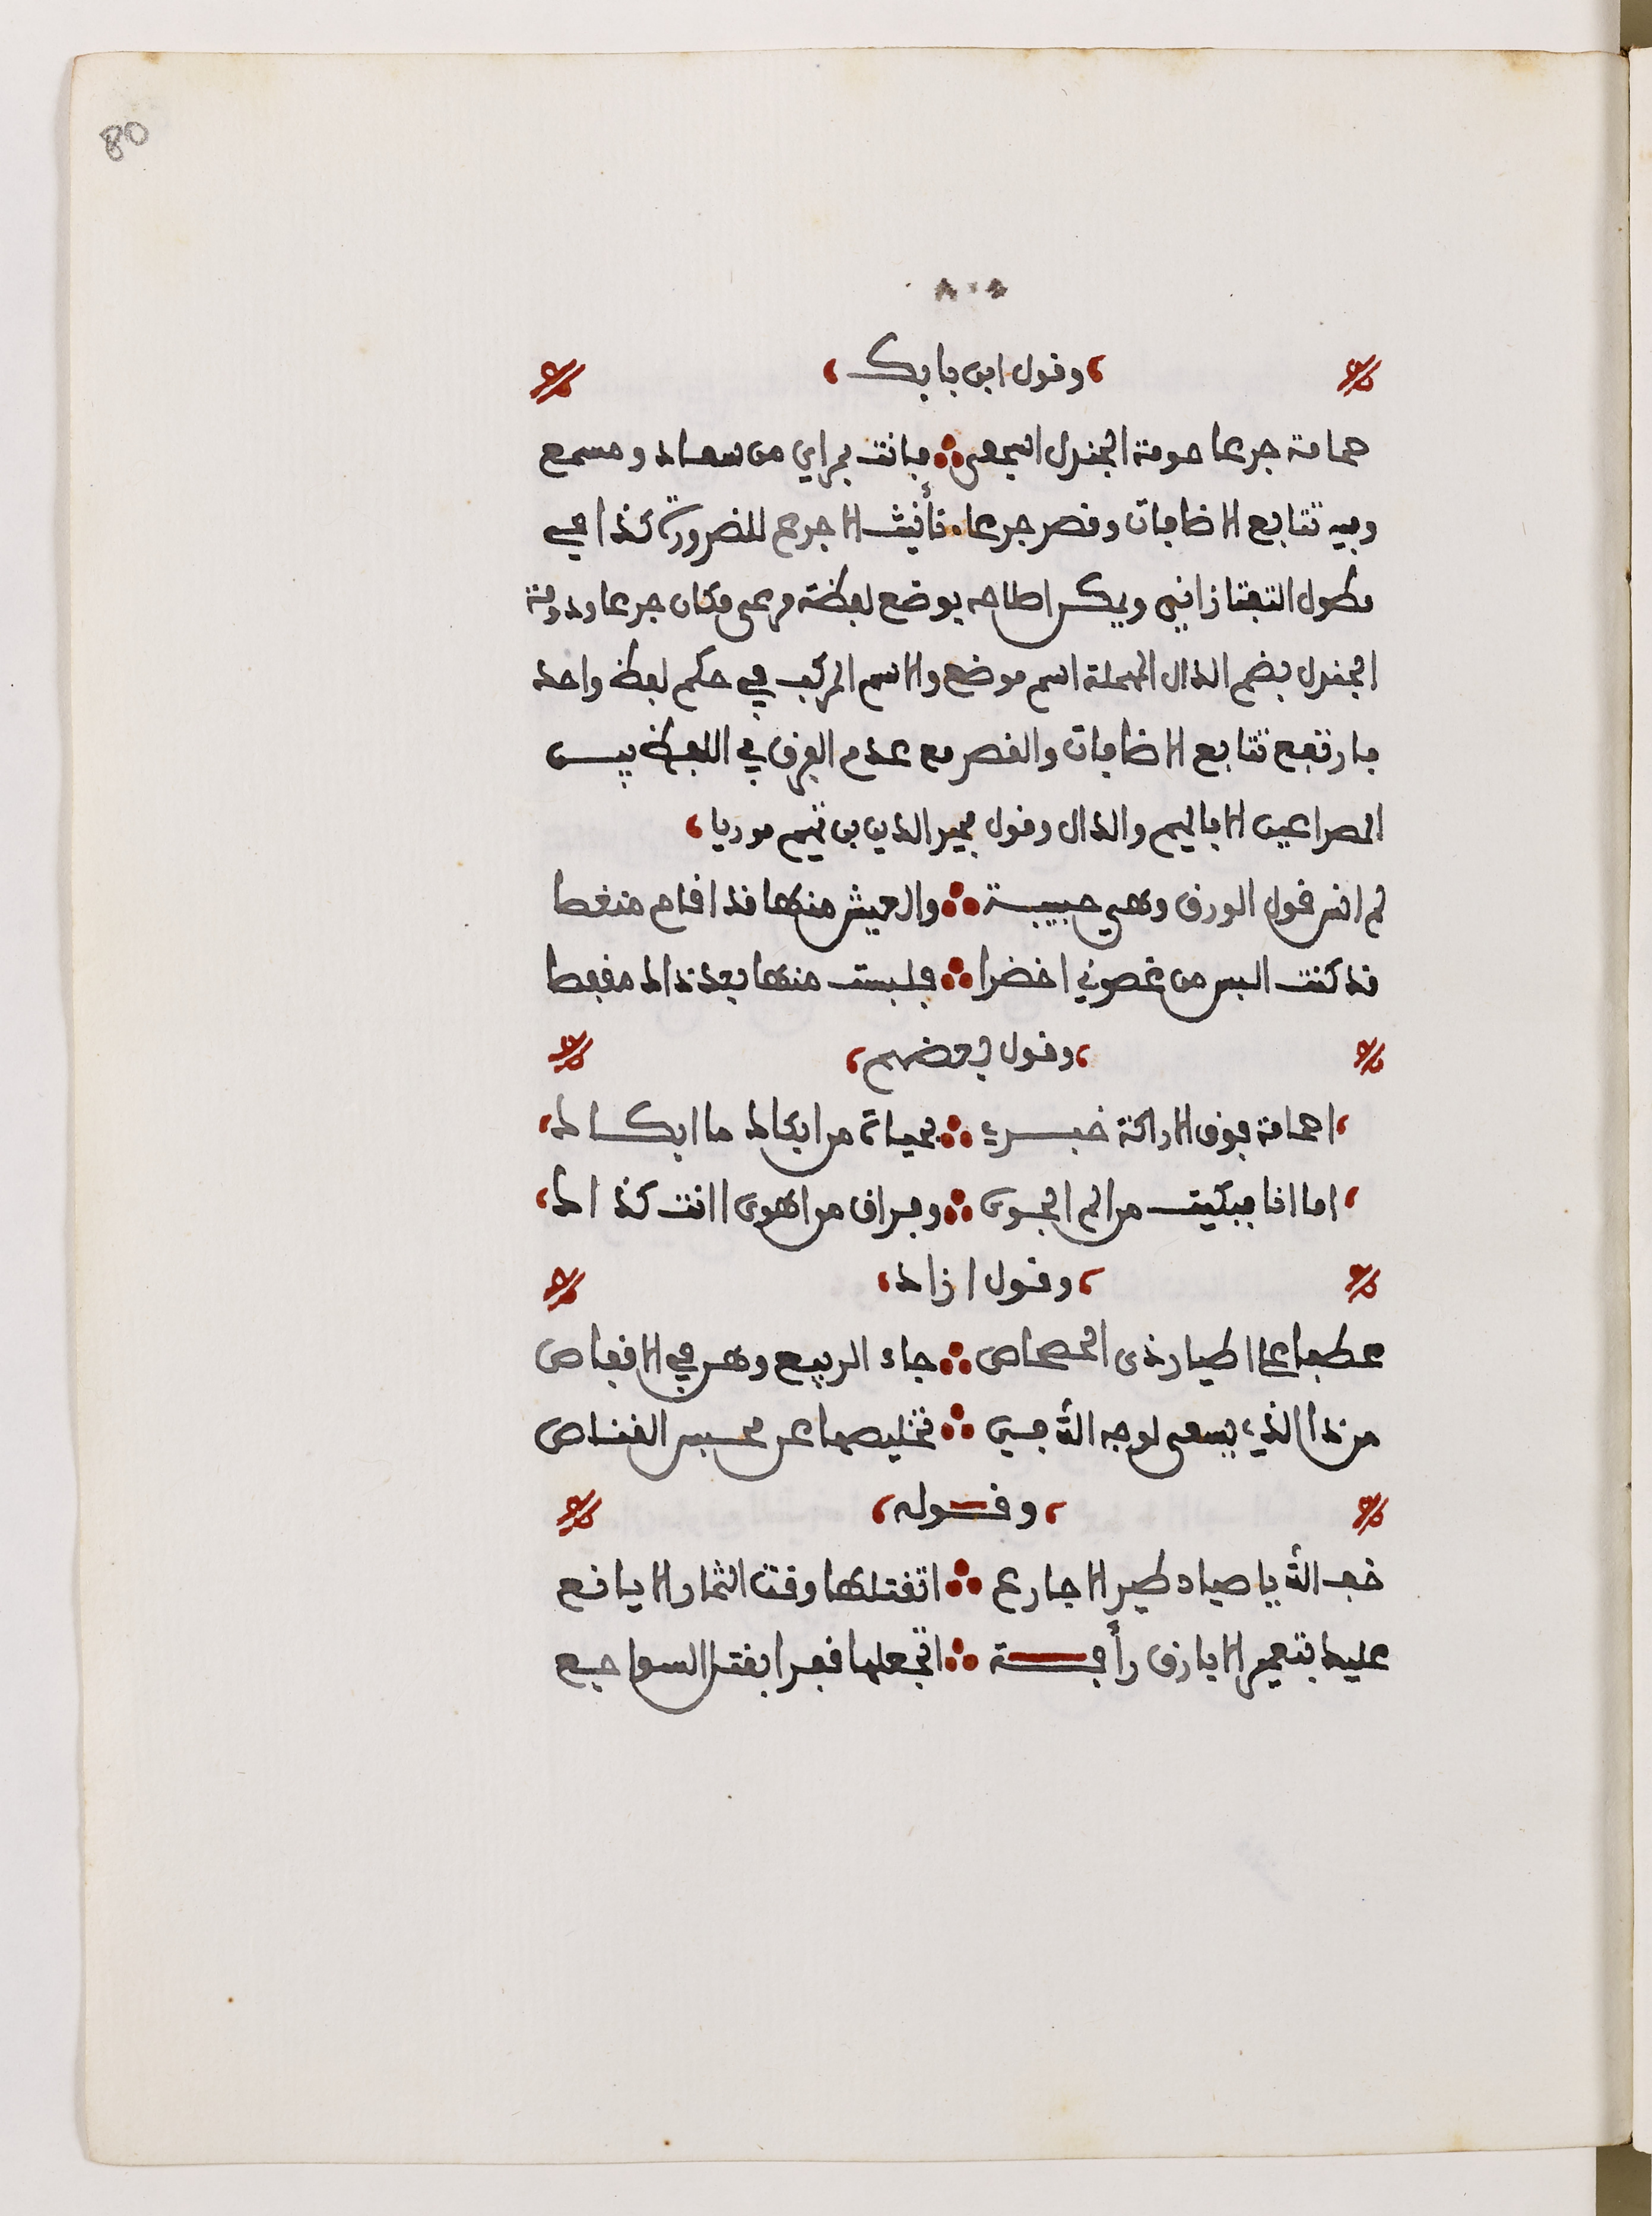 80
٨٠
وقول ابن بابك
حمامة جرعا حومة الجندل اسجعي ∴ فانت بمراي من سعاد ومسمع
وفيه تتابع الاضافات وقصر جرعا، تأنيث الاجرع للضرورة كذا في
مطول التفتازاني ويمكن اصلاحه بوضع لفظة مرعى مكان جرعا ودومة
الجندل بضم الدال المهملة اسم موضع والاسم المركب في حكم لفظ واحد
فارتفع تتابع الاضافات والقصر مع عدم الفرق في اللفظ بيـن
المصراعين الا بالميم والدال وقول مجير الدين بن تميم موريا
لم انس قول الورق وهي حبيسة ∴ والعيش منها قد اقام منغصا
قد كنت البس من غصوني اخضرا ∴ فلبست منها بعد ذاك مقفصا
وقول بعضهم
احمامة فوق الاراكة خبـري ∴ بحياة من ابكاك ما ابكـاك
اما انا فبكيت من الم الجوى ∴ وفراق من اهوى اانت كذاك
وقول ازاد
عطفا على اطيار ذى الحصحاص ∴ جاء الربيع وهن في الاقفاص
من ذا الذي يسعى لوجه الله في ∴ تخليصها عن محبس القناص
وقـوله
خف الله يا صياد طير الاجارع ∴ اتقتلها وقت الثمار اليانع
عليك بتعمير الابارق رأفـة ∴ اتجعلها قفرا بقتل السواجع